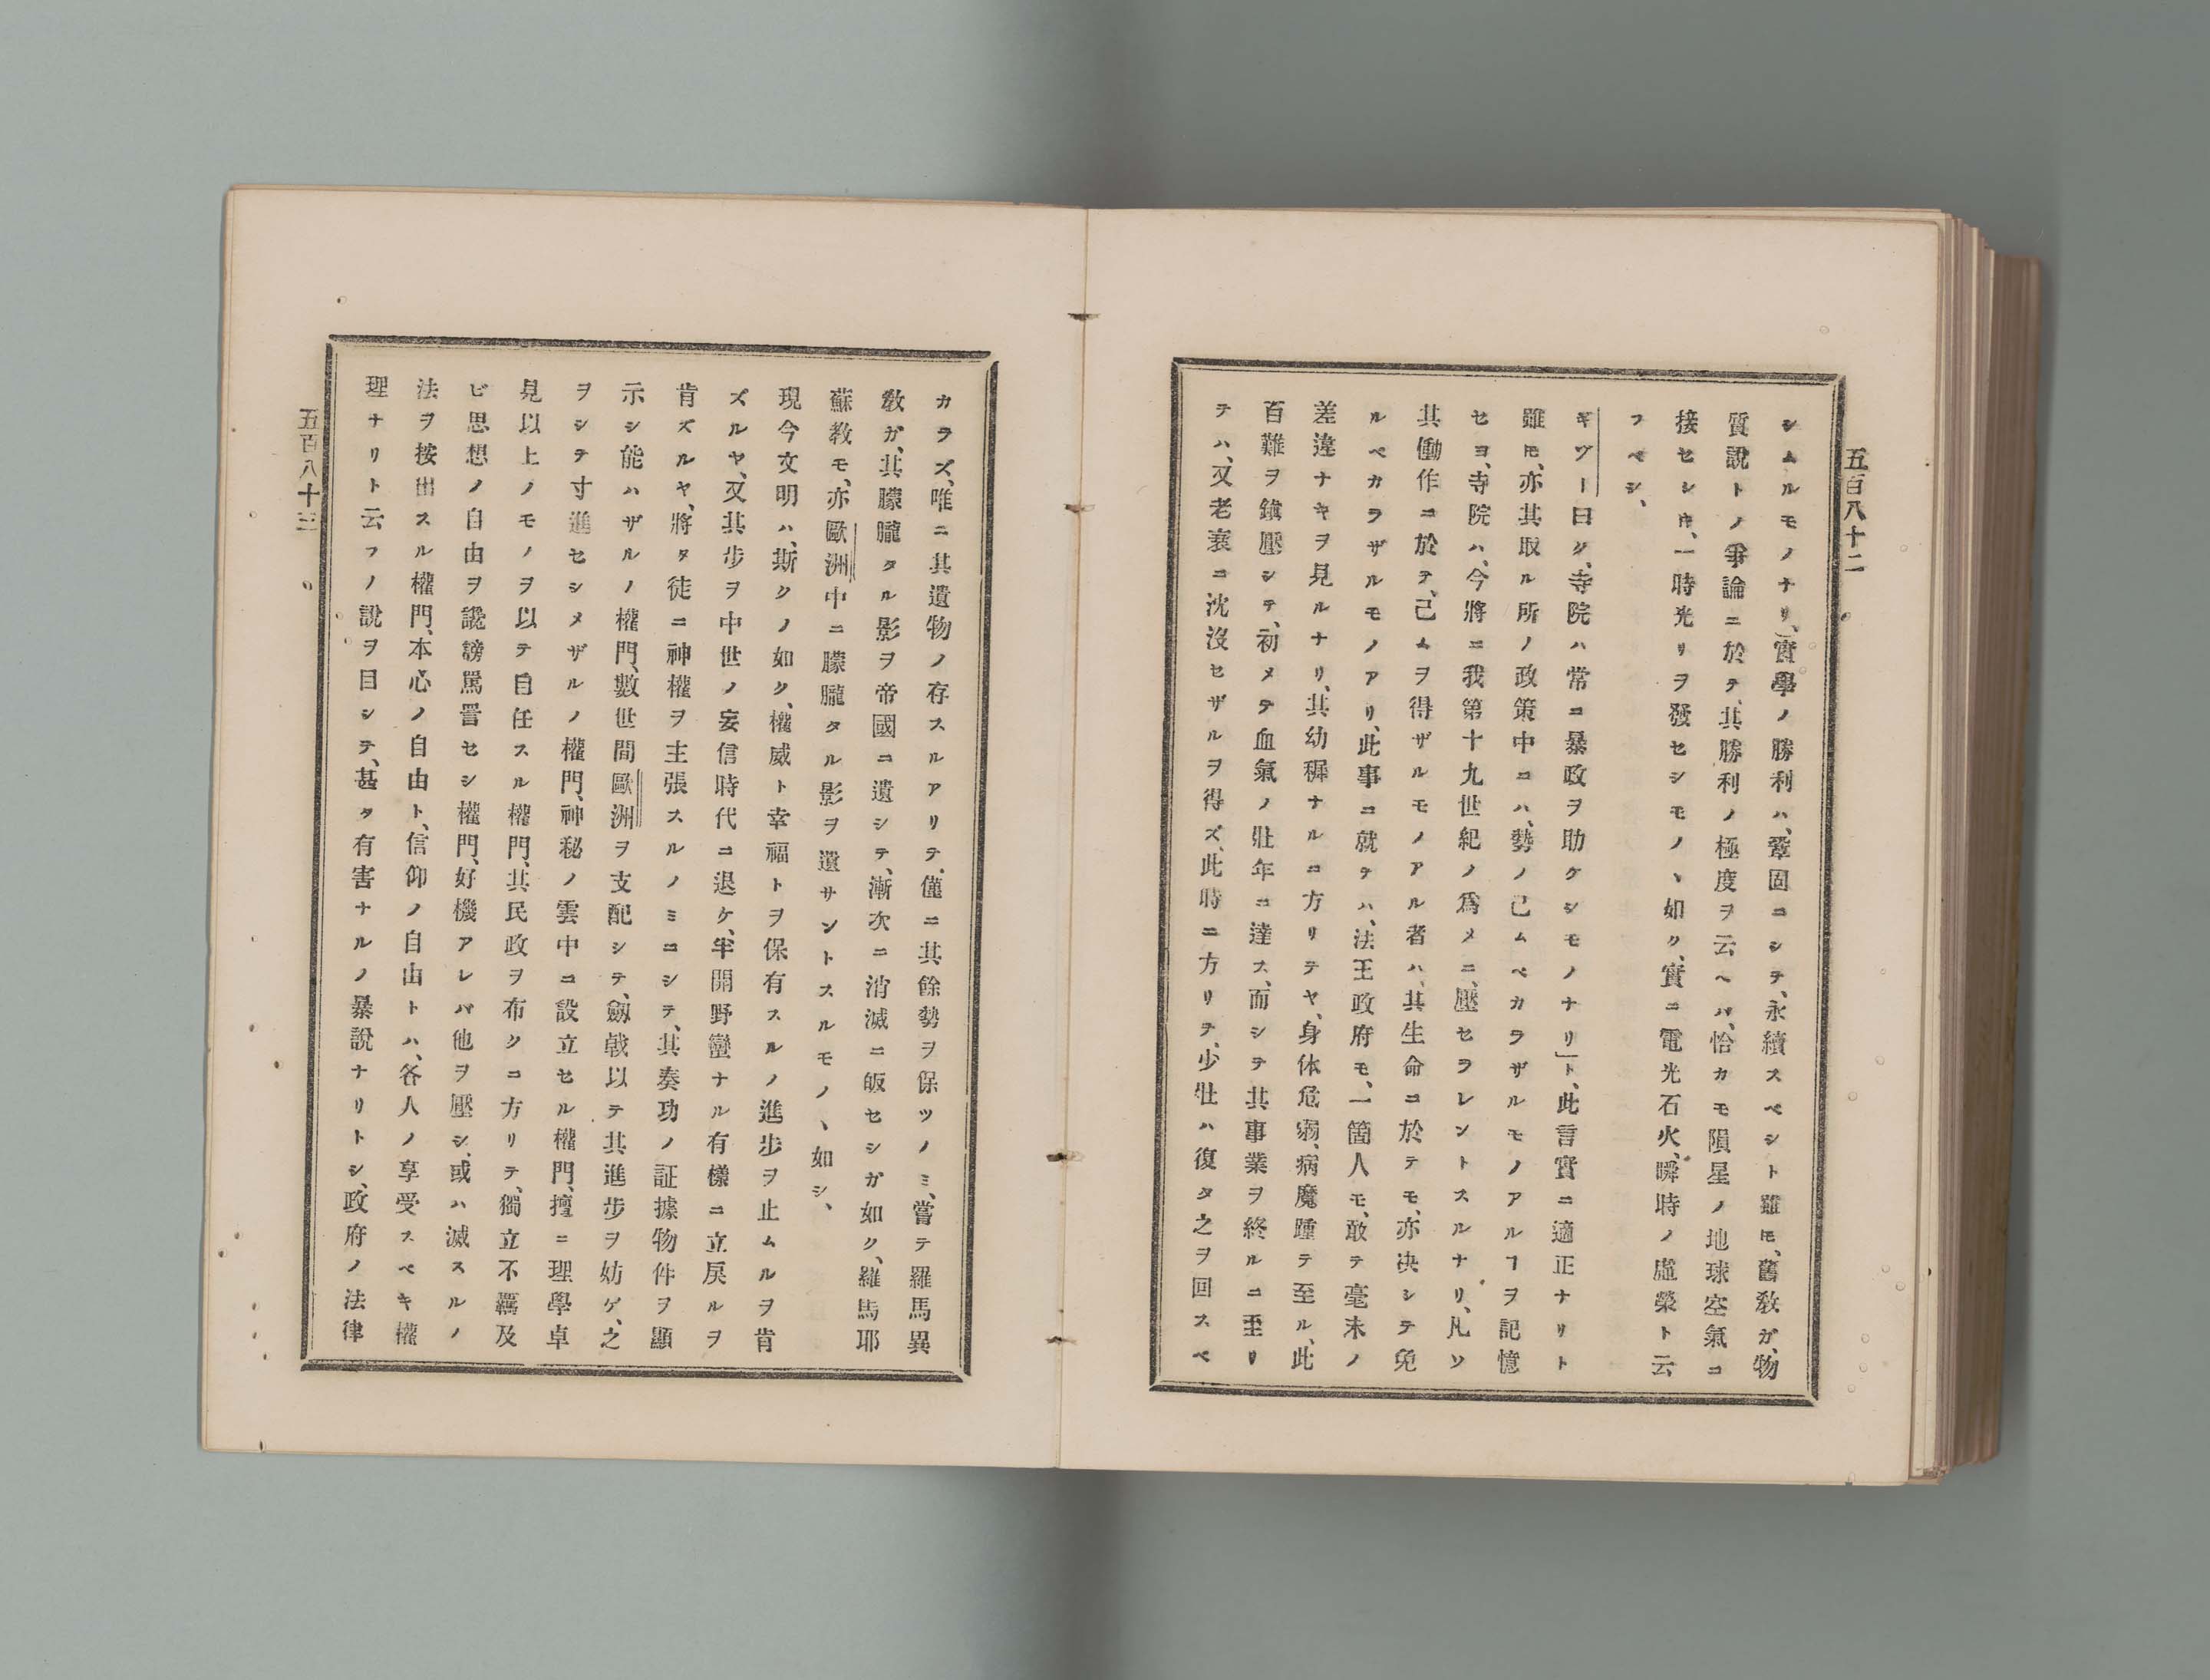 五百八十二
シムルモノナリ、）實學ノ勝利ハ、鞏固ニシテ、永續スベシト雖𪜈、舊敎ガ、物
質說トノ爭論ニ於テ、其勝利ノ極度ヲ云ヘバ、恰カモ隕星ノ地球空氣ニ
接セシ𪜈、一時光リヲ發セシモノヽ如ク、實ニ電光石火、瞬時ノ虛榮ト云
フベシ、
ギヅー曰ク、寺院ハ常ニ暴政ヲ助ケシモノナリ」ト、此言實ニ適正ナリト
雖𪜈、亦其取ル所ノ政策中ニハ、勢ノ已ムベカラザルモノアルヿヲ記憶
セヨ、寺院ハ、今將ニ我第十九世紀ノ爲メニ、壓セラレントスルナリ、凡ソ
其働作ニ於テ、已ムヲ得ザルモノアル者ハ、其生命ニ於テモ、亦决シテ免
ルベカラザルモノアリ、此事ニ就テハ、法王政府モ、一箇人モ、敢テ毫末ノ
差違ナキヲ見ルナリ、其幼穉ナルニ方リテヤ、身体危弱、病魔踵テ至ル、此
百難ヲ鎭壓シテ、初メテ血氣ノ壯年ニ達ス、而シテ其事業ヲ終ルニ至リ
テハ、又老衰ニ沈沒セザルヲ得ズ、此時ニ方リテ、少壯ハ復タ之ヲ回スベ
カラズ、唯ニ其遺物ノ存スルアリテ、僅ニ其餘勢ヲ保ツノミ、嘗テ羅馬異
敎ガ、其朦朧タル影ヲ帝國ニ遺シテ、漸次ニ消滅ニ皈セシガ如ク、羅馬耶
蘇敎モ、亦歐洲中ニ朦朧タル影ヲ遺サントスルモノヽ如シ、
現今文明ハ、斯クノ如ク、權威ト幸福トヲ保有スルノ進步ヲ止ムルヲ肯
ズルヤ、又其步ヲ中世ノ妄信時代ニ退ケ、半開野蠻ナル有樣ニ立戾ルヲ
肯ズルヤ、將タ徒ニ神權ヲ主張スルノミニシテ、其奏功ノ証據物件ヲ顯
示シ能ハザルノ權門、數世間歐洲ヲ支配シテ、劔戟以テ其進步ヲ妨ゲ、之
ヲシテ寸進セシメザルノ權門、神秘ノ雲中ニ設立セル權門、擅ニ理學卓
見以上ノモノヲ以テ自任スル權門、其民政ヲ布クニ方リテ、獨立不羈及
ビ思想ノ自由ヲ讒謗罵詈セシ權門、好機アレバ他ヲ壓シ、或ハ滅スルノ
法ヲ按出スル權門、本心ノ自由ト、信仰ノ自由トハ、各人ノ享受スベキ權
理ナリト云フノ說ヲ目シテ、甚タ有害ナルノ暴說ナリトシ、政府ノ法律
五百八十三